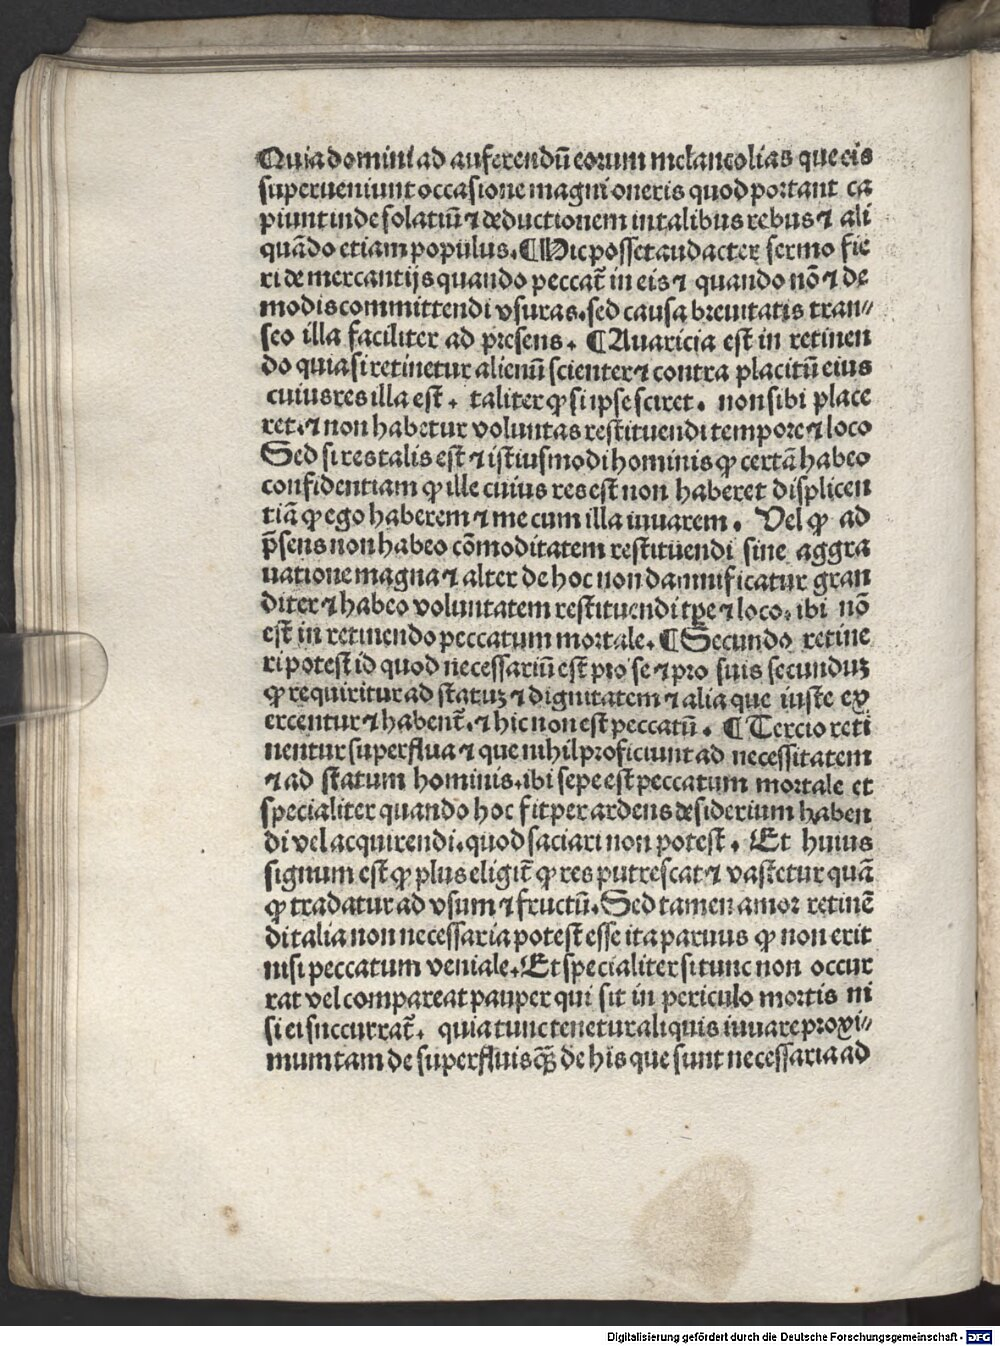 Quia domini ad auferendũ eorum melancolias que eis
superueniunt occasione magni oneris quod portant ca
piunt inde solatiũ ⁊ deductionem in talibus rebus ⁊ ali
quãdo etiam populus. ¶ Hic posset audacter sermo fie
ri de mercantijs quando peccat̃ in eis ⁊ quando nõ ⁊ de
modis committendi vsuras. sed causa breuitatis tran⸗
seo illa faciliter ad presens. ¶ Auaricia est in retinen
do quia si retinetur alienũ scienter ⁊ contra placitũ eius
cuius res illa est. taliter ꝙ si ipse sciret. non sibi place
ret. ⁊ non habetur voluntas restituendi tempore ⁊ loco
Sed si res talis est ⁊ istiusmodi hominis ꝙ certã habeo
confidentiam ꝙ ille cuius res est non haberet displicen
tiã ꝙ ego haberem ⁊ me cum illa iuuarem. Vel ꝙ ad
p̃sens non habeo cõmoditatem restituendi sine aggra
uatione magna ⁊ alter de hoc non damnificatur gran
diter ⁊ habeo voluntatem restituendi tꝑe ⁊ loco. ibi nõ
est in retinendo peccatum mortale. ¶ Secundo retine
ri potest id quod necessariũ est pro se ⁊ pro suis secunduꝫ
ꝙ requiritur ad statuꝫ ⁊ dignitatem ⁊ alia que iuste ex
ercentur ⁊ habent̃. ⁊ hic non est peccatũ. ¶ Tercio reti
nentur superflua ⁊ que nihil proficiunt ad necessitatem
⁊ ad statum hominis. ibi sepe est peccatum mortale et
specialiter quando hoc fit per ardens desiderium haben
di vel acquirendi. quod saciari non potest. Et huius
signum est ꝙ plus eligit̃ ꝙ res putrescat ⁊ vastetur quã
ꝙ tradatur ad vsum ⁊ fructũ. Sed tamen amor retinẽ
di talia non necessaria potest esse ita paruus ꝙ non erit
nisi peccatum veniale. Et specialiter si tunc non occur
rat vel compareat pauper qui sit in periculo mortis ni
si ei succurrat̃. quia tunc tenetur aliquis iuuare proxi⸗
mum tam de superfluis ꝗ̃ de his que sunt necessaria ad
Digitalisierung gefördert durch die Deutsche Forschungsgemeinschaft - DFG